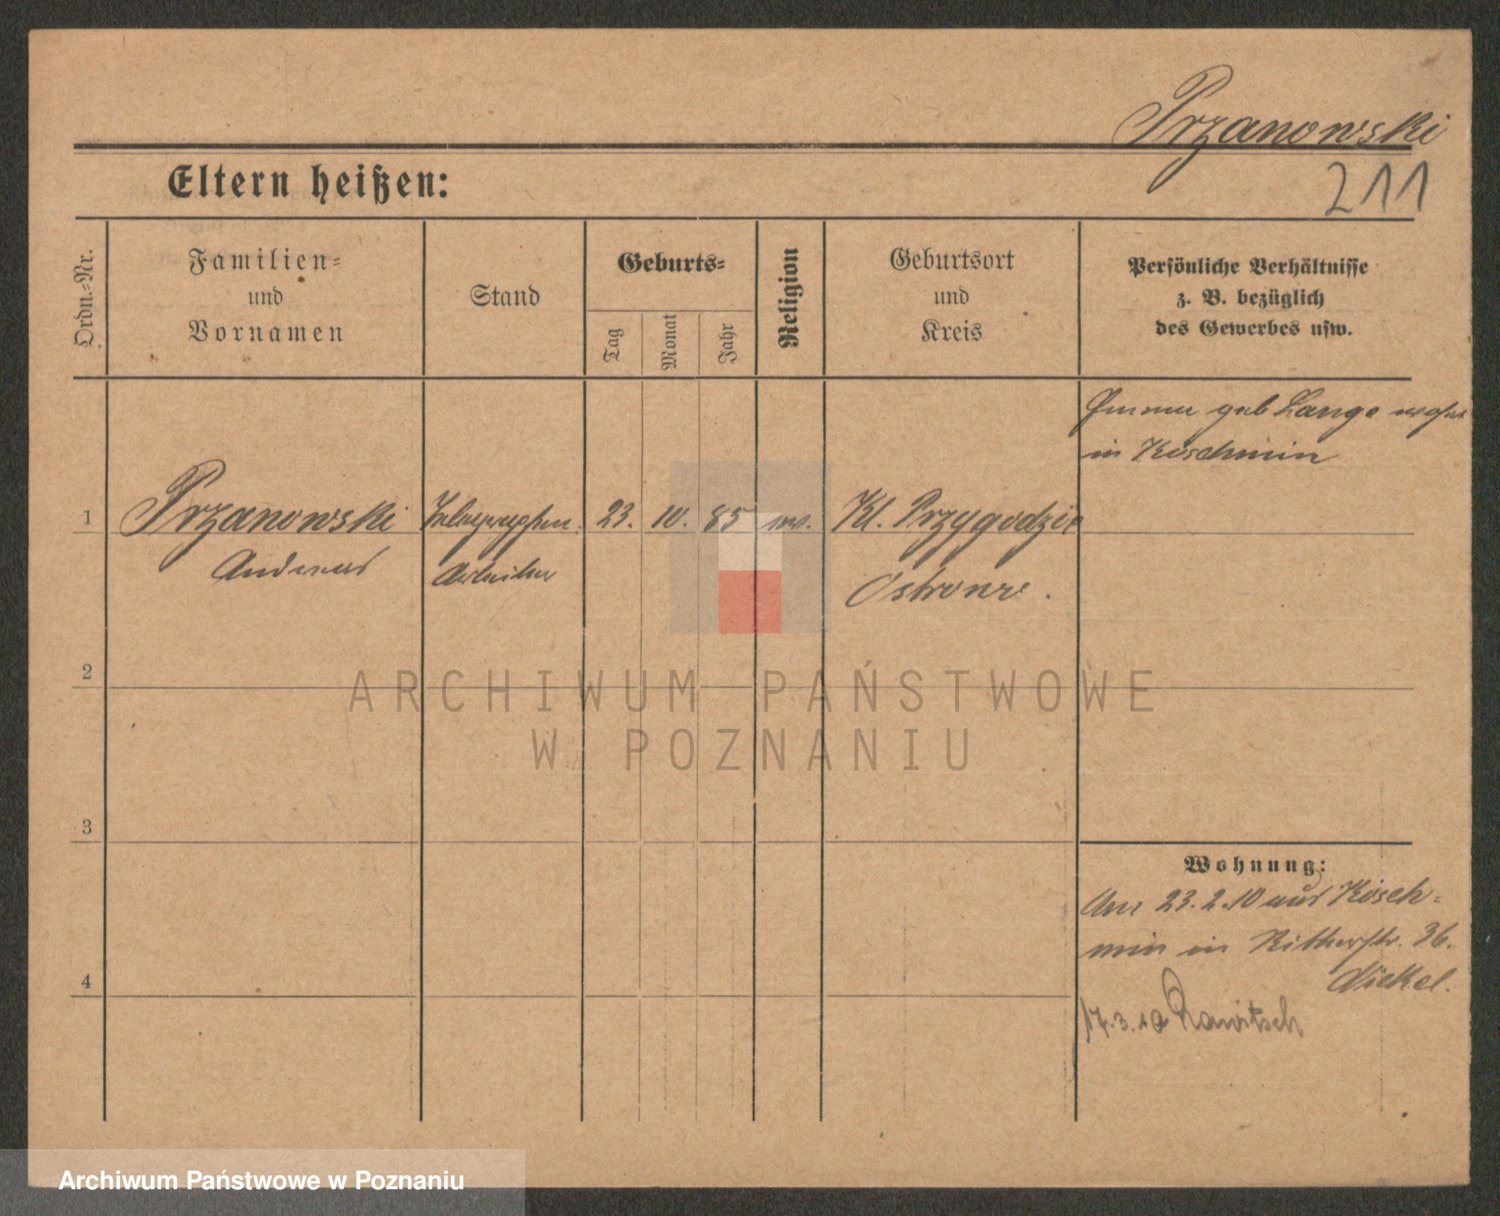 Przanowski
211
Eltern heißen:
Ordn.-Nr.
Familien-
und
Vornamen
Stand
Geburts-
Tag
Monat
Jahr
Religion
Geburtsort
und
Kreis
Persönliche Verhältnisse
z. B. bezüglich
des Gewerbes usw.
geb Lange
in Koschmin
1 Przanowski Telegraphen 23. 10. 85 Kl. Przygodzie
Andreas Arbeiter Ostrowo.
2
3
4
Wohnung:
Am 23.2.10 aus Kosch-
min in Ritterstr. 36.
Nickel.
17.3.10 Rawitsch
ARCHIWUM PAŃSTWOWE
W POZNANIU
Archiwum Państwowe w Poznaniu